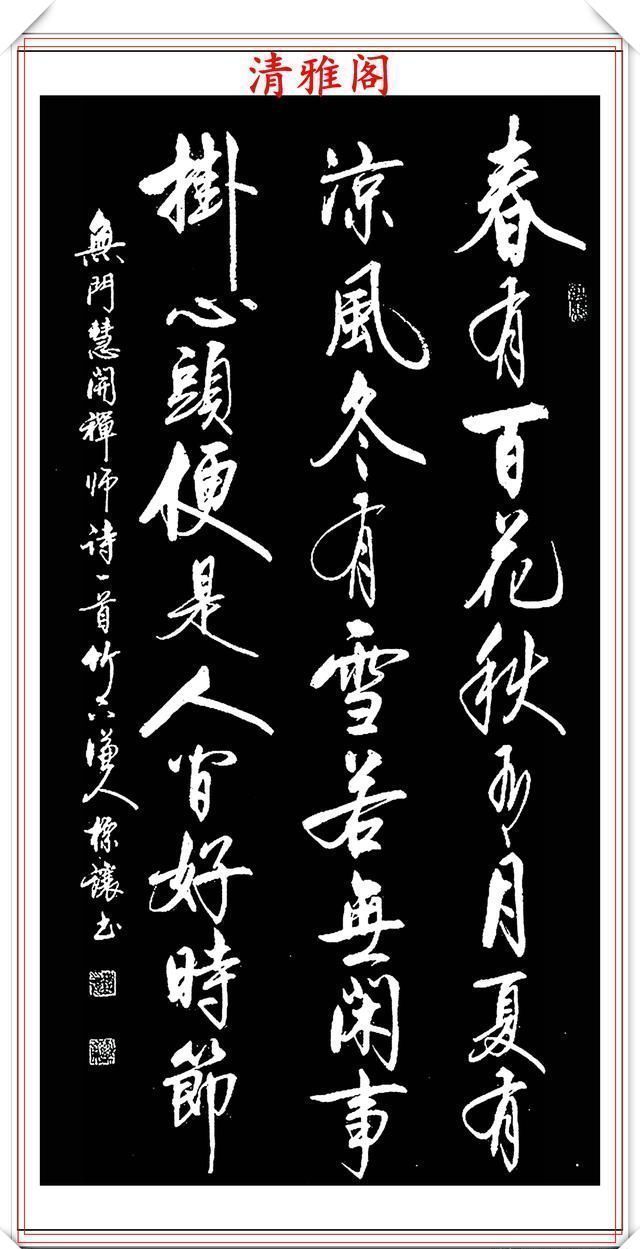 清雅阁
春有百花秋有月夏有
涼風冬有雪若無閑事
掛心頭便是人間好時節
無門慧開禪师诗一首竹人讓书